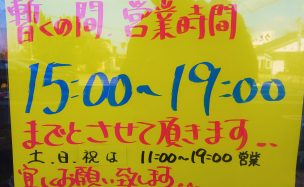 暫くの間 営業時間
15:00~19:00
までとさせて頂きます..
土.日.祝は 11:00~19:00 営業
宜しくお願い致します...